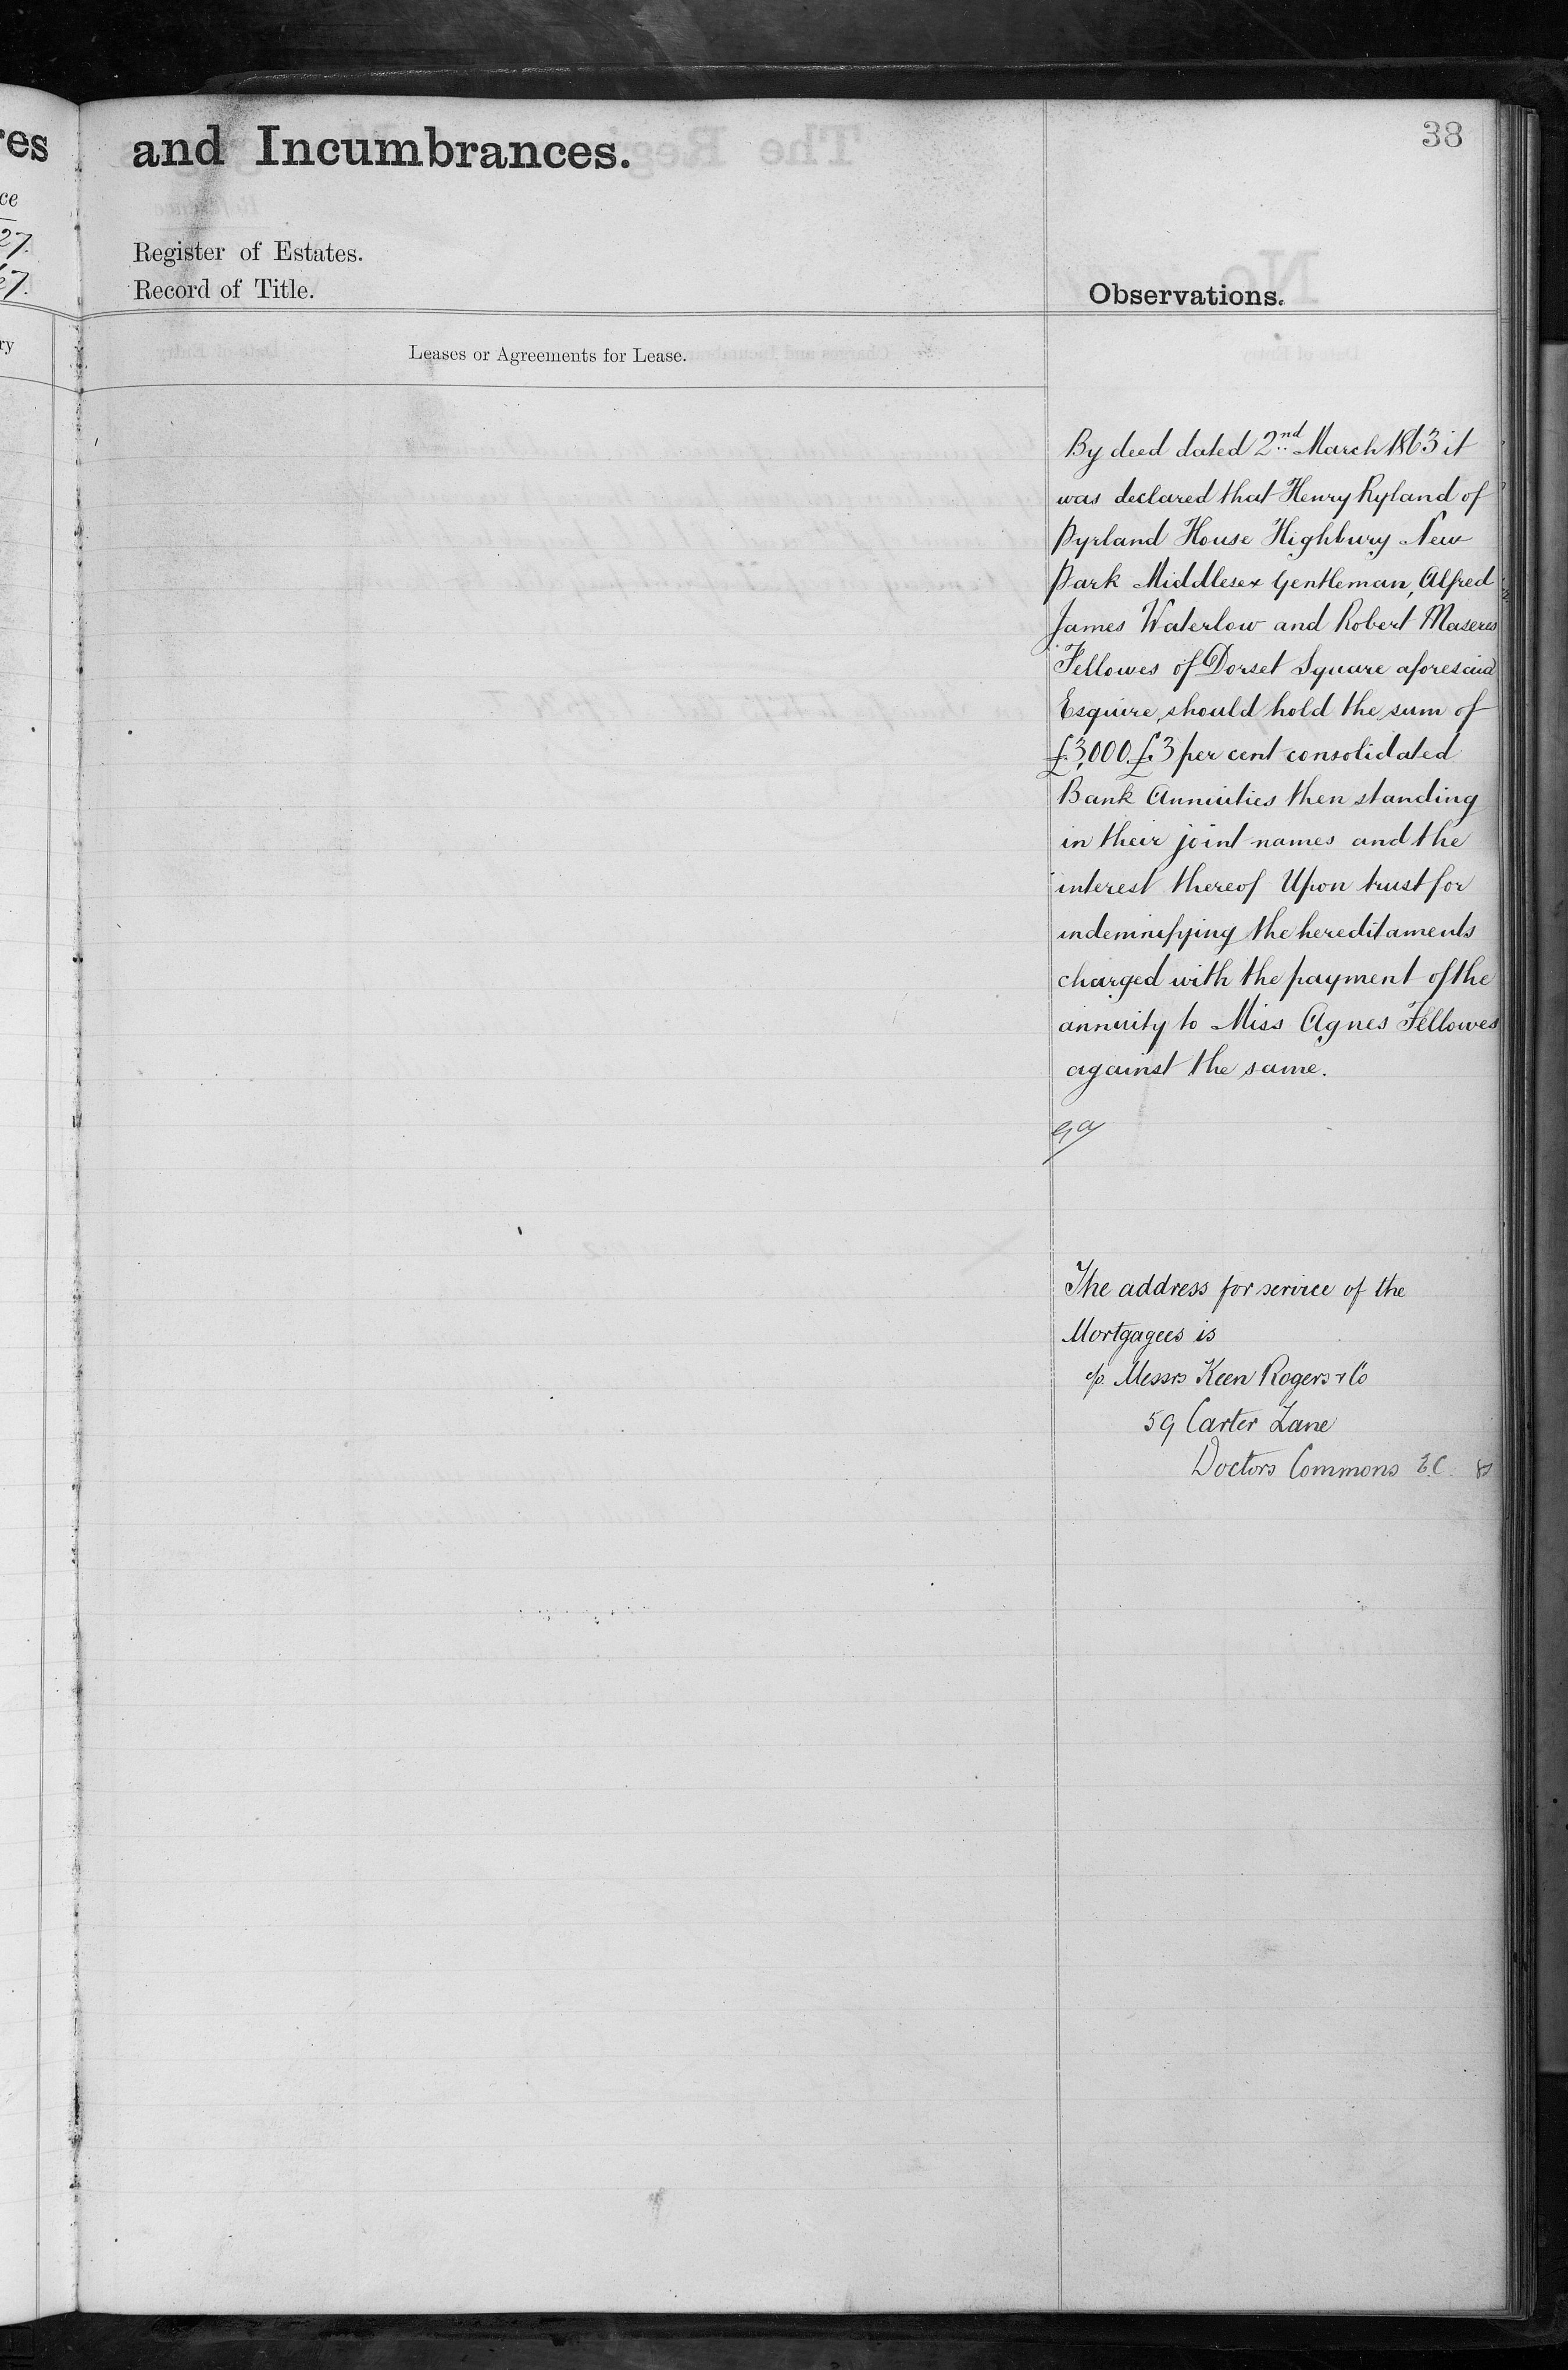 res
ce
27.
67.
ry
and Incumbrances.
38
Register of Estates.
Record of Title.
Observations.
Leases or Agreements for Lease.
By deed dated 2nd March 1863 it
was declared that Henry Ryland of
Pyrland House Highbury New
Park Middlesex Gentleman, Alfred
James Waterlow and Robert Maseres
Fellowes of Dorset Square aforesaid
Esquire, should hold the sum of
£3,000 £3 per cent consolidated
Bank Annuities then standing
in their joint names and the
interest thereof Upon trust for
indemnifying the hereditaments
charged with the payment of the
annuity to Miss Agnes Fellowes
against the same.
The address for service of the
Mortgagees is
c/o Messrs Keen Rogers & Co
59 Carter Lane
Doctors Commons E.C.